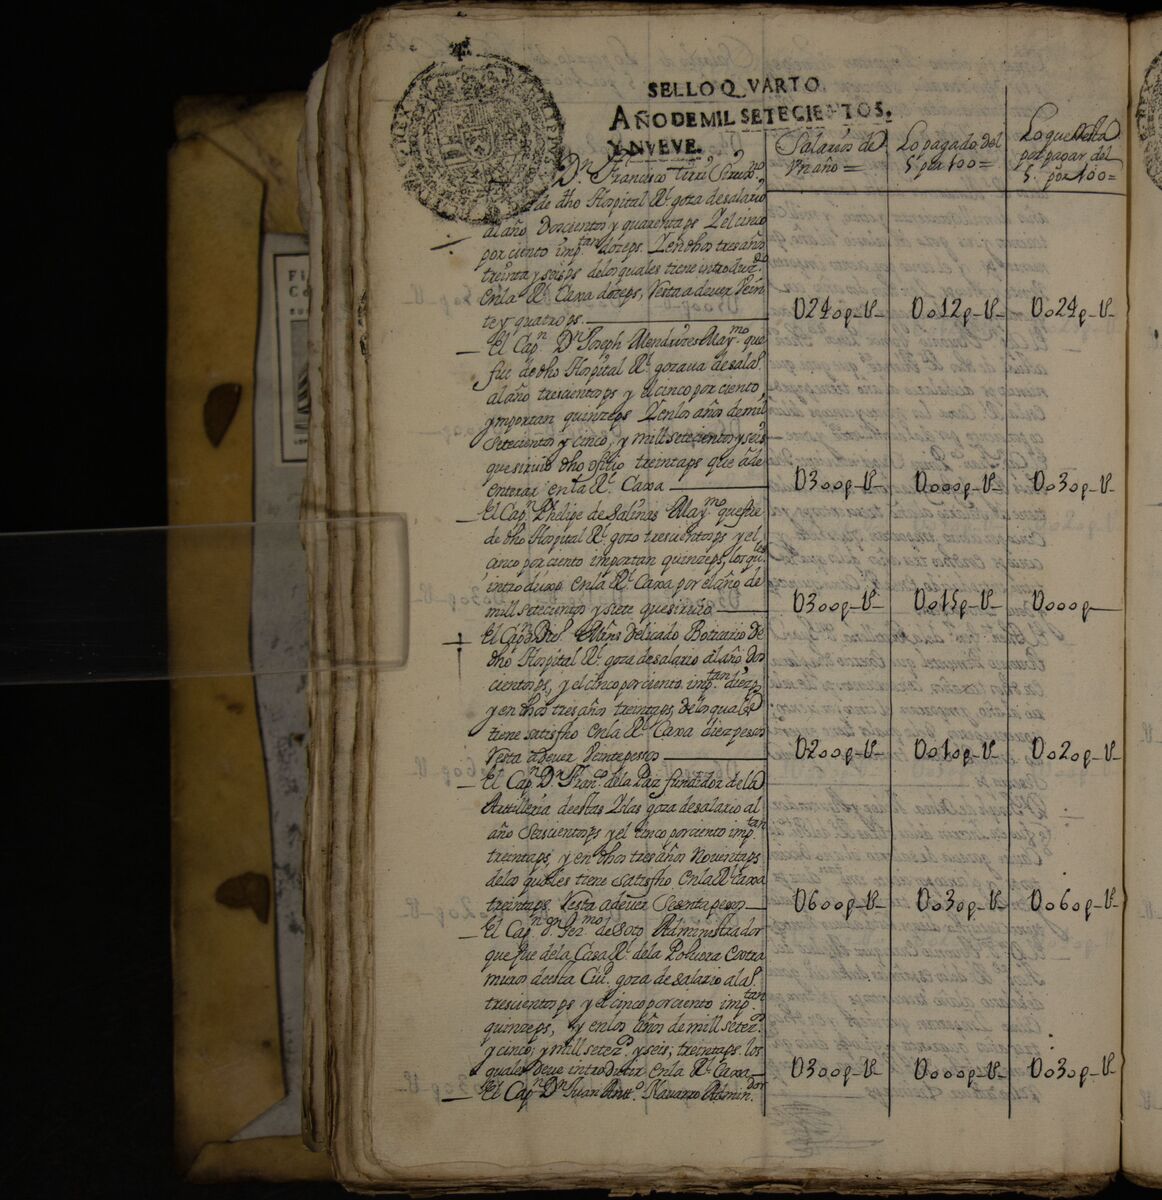 SELLO QVARTO
AÑO DE MIL SETECIENTOS,
Y NVEVE.
Salarios de
Vn año =
Lo pagado del
5. por 100 =
Lo que resta
por pagar del
5. por 100 =
Dn. Francisco
de dho Hospital Rl. goza de salario
al año Doscientos y quarenta ps Y el cinco
por ciento imptan doze ps. Y en dhos tres años
treinta y seis ps de los quales tiene introduzdo
en la Rl. Caxa doze ps, Resta a dever Vein
te y quatro ps. D240p-U- Do12p-U- Do24p-U-
El Capn. Dn. Joseph Maymo. que
fue de dho Hospital Rl. gozaua de salo.
al año trescientos ps y el cinco por ciento
ymportan quinze ps Y en los años de mil
Setecientos y cinco, y mill setecientos y seis
que siruio dho ofiçio treinta ps que a de
enterar en la Rl. Caxa D300p-U- Dooop-U- Do30p-U-
El Capn. Phelipe de Salinas Maymo que fue
de dho Hospital Rl. gozo trescientos ps y el
cinco por ciento importan quinze ps, los qules
introduxo en la Rl. Caxa por el año de
mill setecientos y siete que siruio D300p-U- Do15p-U- Dooop
El Capn. Delicado Boticario de
dho Hospital Rl. goza de salario al año dos
cientos ps, y el cinco por ciento imptan diez ps
y en dhos tres años treinta ps, de los quales
tiene satisfho en la Rl. Caxa diez pesos
Resta a dever Veinte pesos D200p-U- Do10p-U- Do20p-U-
El Capn Dn. Frano. de la Paz fundidor de la
Artilleria de estas Yslas goza de salario al
año Seiscientos ps y el cinco por ciento imptan
treinta ps, y en dhos tres años Noventa ps
de los quales tiene satisfho en la Rl Caxa
treinta ps. Resta a dever Sesenta pesos D600p-U- Do30p-U- Do60p-U-
El Capn Dn. de Soto Administrador
que fue de la Casa Rl. de la Poluora Extra
muros de esta Ciud. goza de salario al ao.
trescientos ps y el cinco por ciento imptan
quinze ps, y en los años de mill setezos
y cinco; y mill setezos. y seis; treinta ps. los
quales deve introduzir en la Rl. Caxa D300p-U- Dooop-U- Do30p-U-
El Capn Dn Juan Anto. Navarro Adminidor.